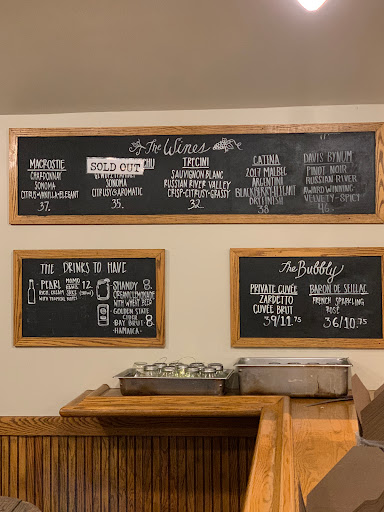 The Wines
MACROSTIE
CHARDONNAY
SONOMA
CITRUS-VANILLA-ELEGANT
37.
SOLD OUT
SONOMA
CITRUSY & AROMATIC
35.
TRECINI
SAUVIGNON BLANC
RUSSIAN RIVER VALLEY
CRISP-CITRUSY-GRASSY
32
CATENA
2017 MALBEC
ARGENTINI
DRY FINISH
38
DAVIS BYNUM
PINOT NOIR
RUSSIAN RIVER
AWARD WINNING
VELVETY-SPICY
46.
THE DRINKS TO HAVE
PEARL
MOMO
12
RICH, CREAMY
SHANDY 8.
CREAM LEMONADE
WITH WHEAT BEER
GOLDEN STATE
CIDER
BAY BREVIT 8.
HAMAICA
The Bubbly
PRIVATE CUVÉE
ZARDETTO
CUVÉE BRUT
39/11.75
BARON DE SEILLAC
FRENCH SPARKLING
ROSÉ
36/10.75